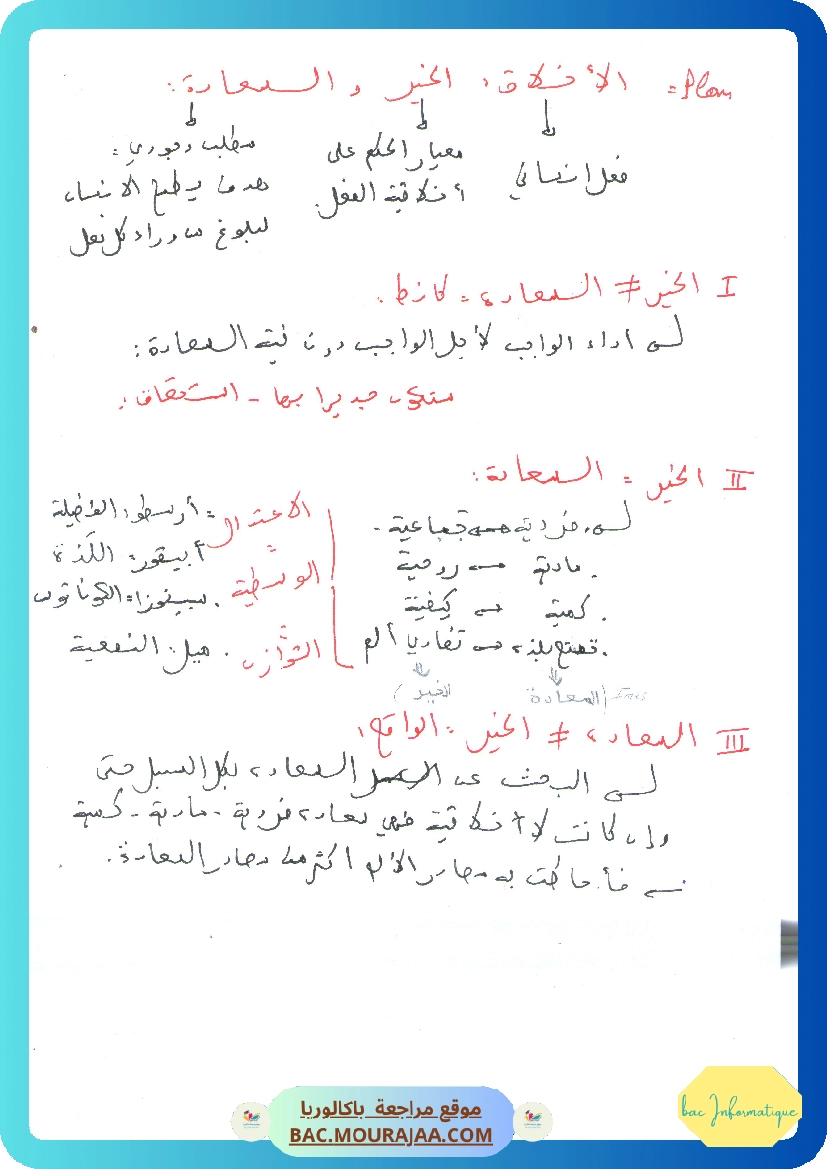 Plan = الأخلاق: الخير و السعادة:
فعل إنساني
معيار الحكم على
أخلاقية الفعل.
مطلب وجودي:
هدف يطمح الانسان
لبلوغه من وراء كل فعل
I الخير ≠ السعادة: كانط.
أداء الواجب لأجل الواجب دون نية السعادة:
ستكون جديرا بها - استحقاق:
II الخير = السعادة:
فردية جماعية.
. مادية روحية
. كمية كيفية
. تمتع بلذة تفادي ألم
السعادة
الخير
الاعتدال
=
الوسطية
=
التوازن
= أرسطو: الفضيلة
أبيقور: اللّذة
. سبينوزا: الكوناتوس
. ميل: النفعية
III السعادة ≠ الخير: الواقع:
البحث عن السعادة بكل السبل حتى
وإن كانت لا أخلاقية فهي سعادة فردية - مادية - كمية
به مصادر الألم أكثر من مصادر السعادة.
موقع مراجعة باكالوريا
BAC.MOURAJAA.COM
bac Informatique